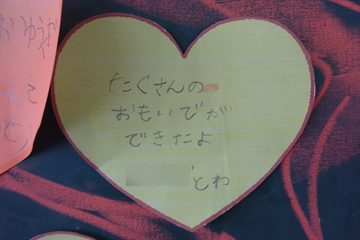 たくさんの
おもいでが
できたよ
とわ